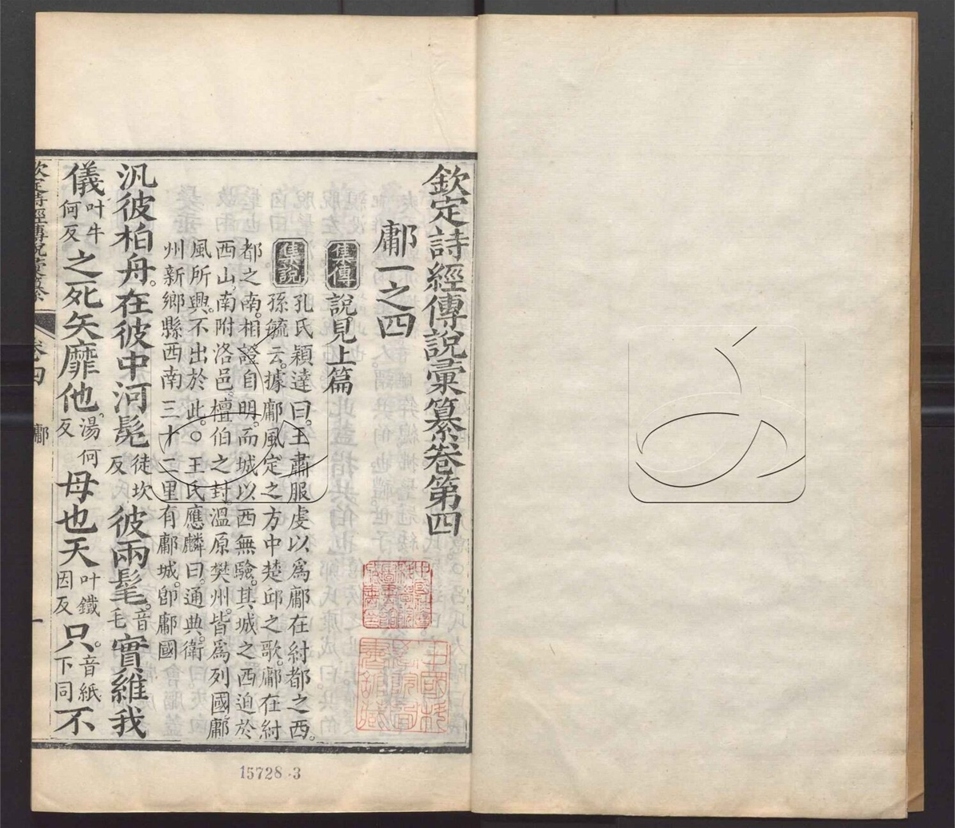 欽定詩經傳說彙纂卷第四
鄘一之四
集傳 說見上篇
集說 孔氏穎達曰。王肅服虔以爲鄘在紂都之西。
孫毓云。據鄘風定之方中楚邱之歌。鄘在紂
都之南。相證自明。而城以西無驗。其城之西迫於
西山。南附洛邑。檀伯之封。溫原樊州。皆爲列國。鄘
風所興。不出於此。○王氏應麟曰。通典。衞
州新鄉縣西南三十二里有鄘城。卽鄘國
汎彼柏舟。在彼中河。髧徒坎反彼兩髦。音毛實維我
儀叶牛何反之死矢靡他。湯何反母也天叶鐵因反只。音紙下同不
欽定詩經傳說彙纂 卷四 鄘 一
15728.3